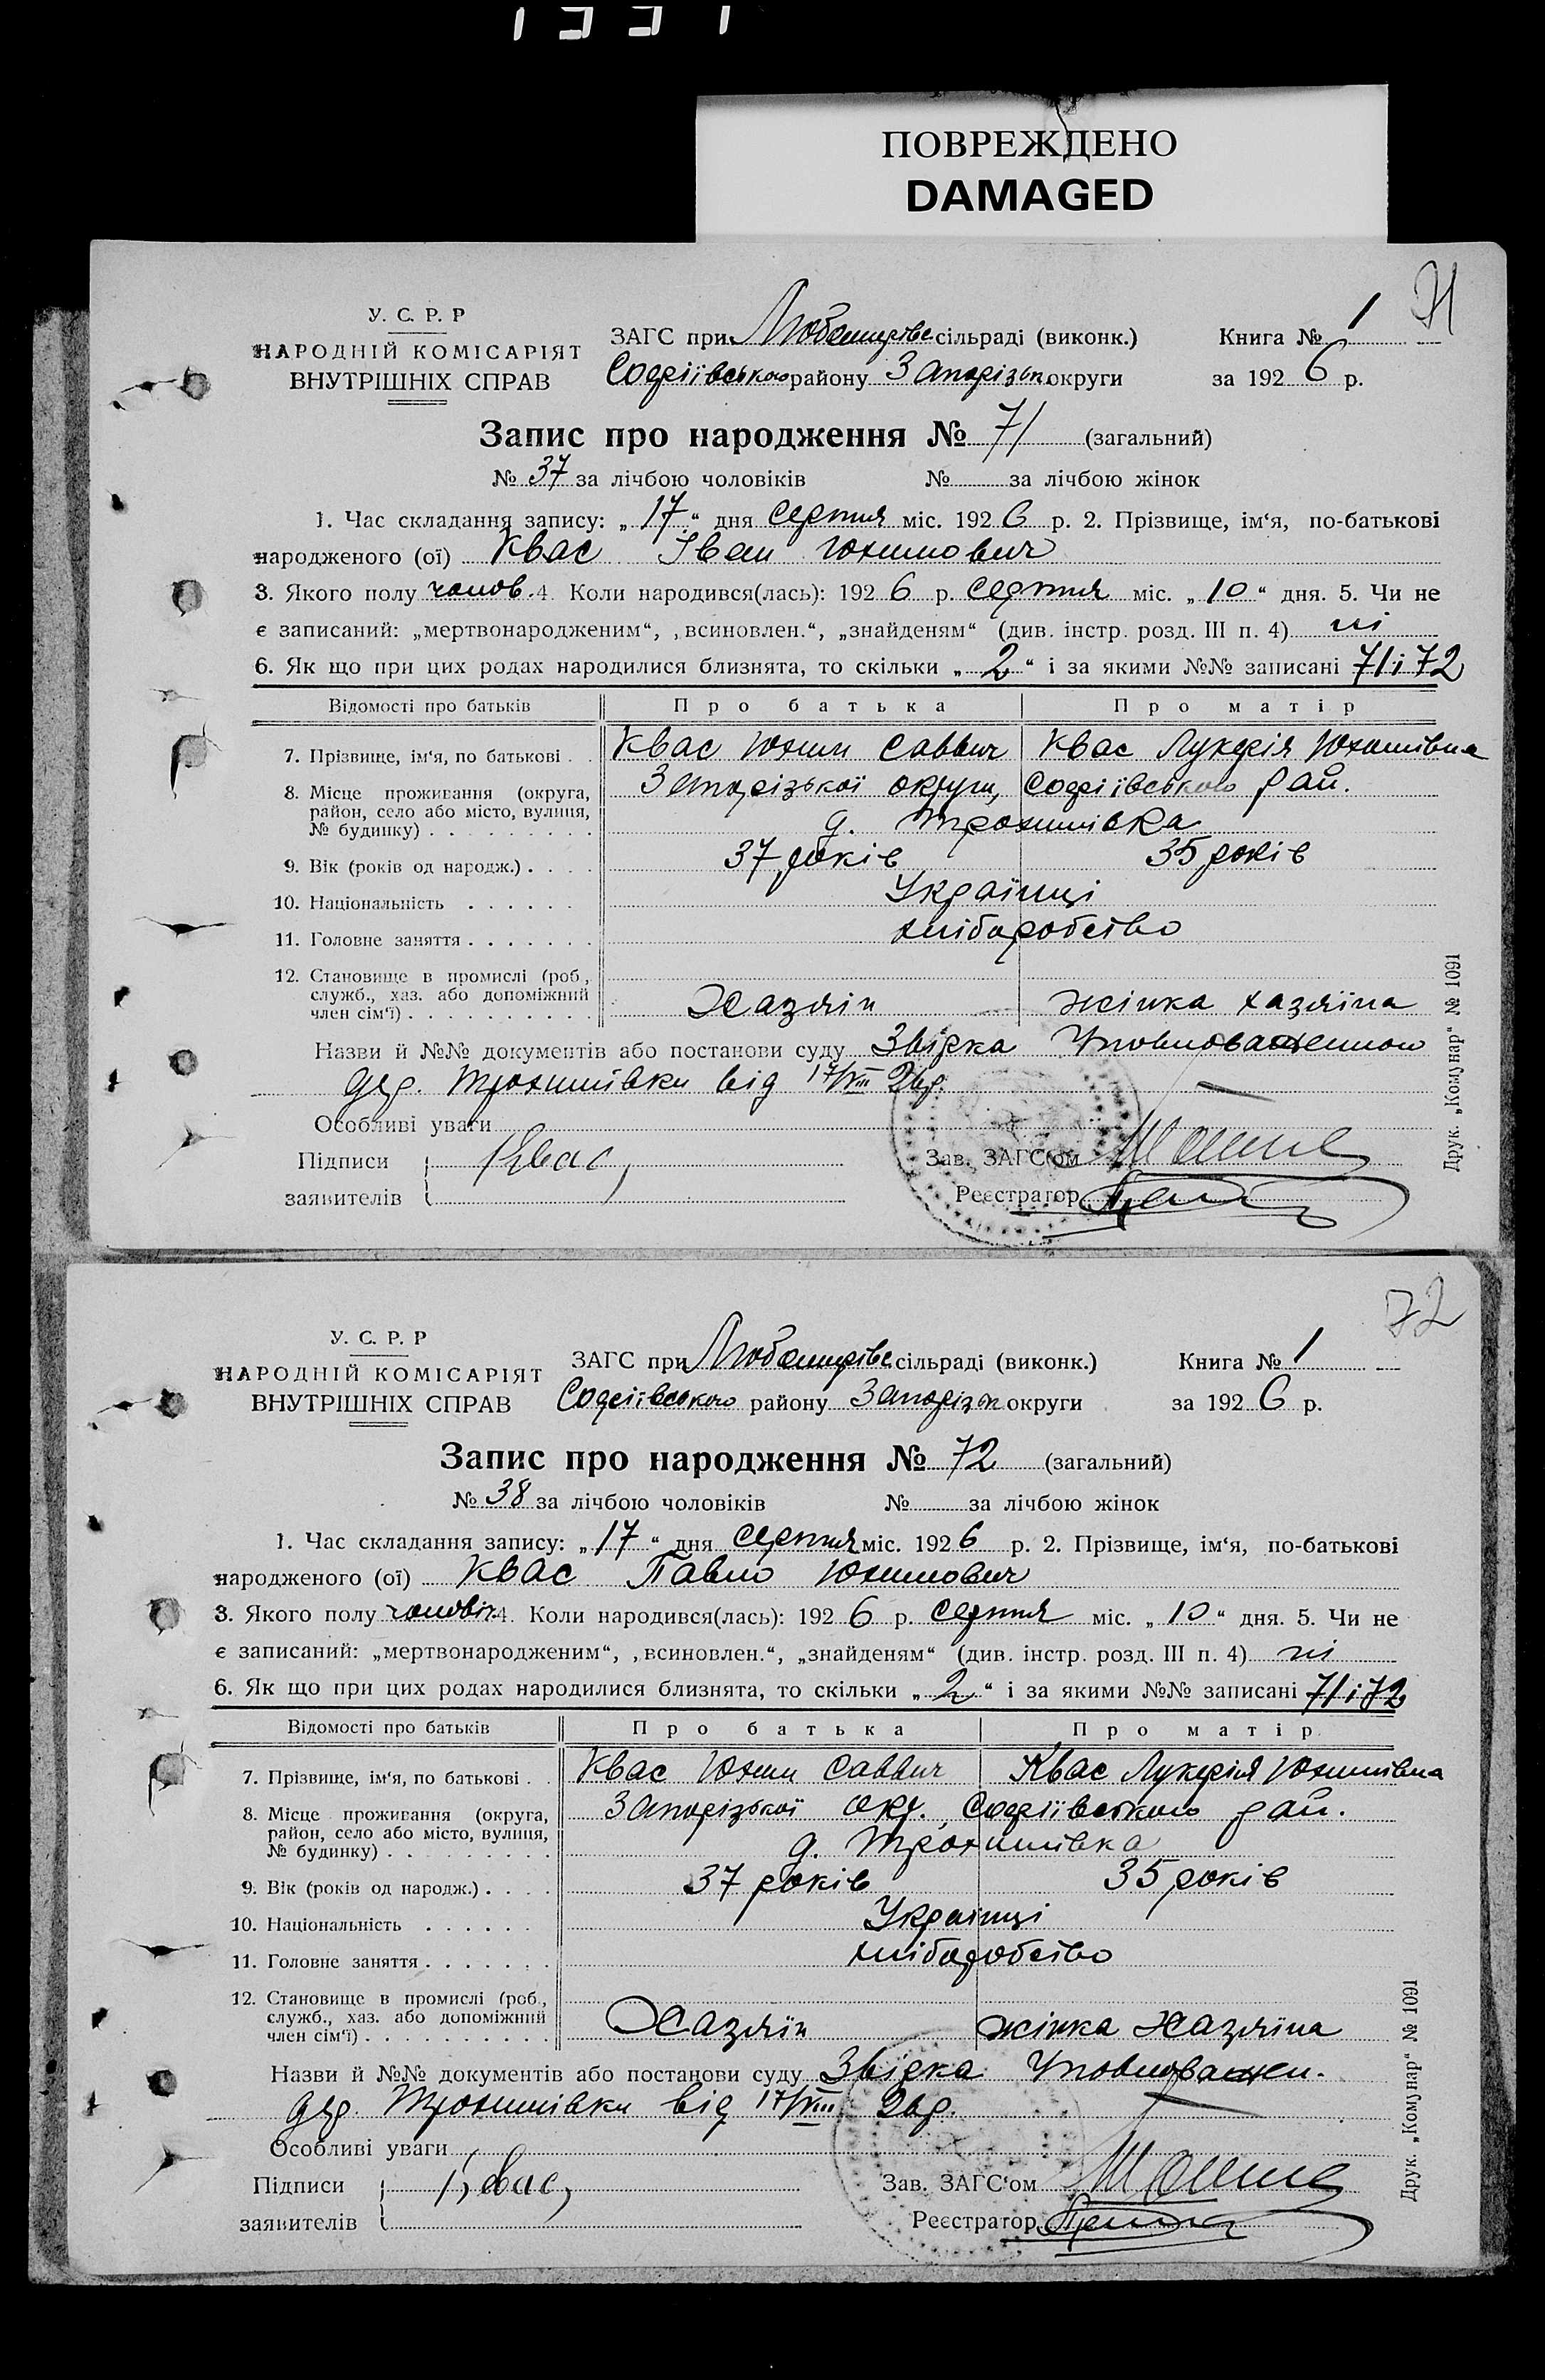 ПОВРЕЖДЕНО
DAMAGED
71
У. С. Р. Р
НАРОДНІЙ КОМІСАРІЯТ
ВНУТРІШНІХ СПРАВ
ЗАГС при Любомирівс сільраді (виконк.) Книга № 1
Софіївського району Запорізьк округи за 1926 р.
Запис про народження № 71 (загальний)
№ 37 за лічбою чоловіків № за лічбою жінок
1. Час складання запису: „17“ дня серпня міс. 1926 р. 2. Прізвище, ім‘я, по-батькові
народженого (ої) Квас Іван Юхимович
3. Якого полу чолов. 4. Коли народився(лась): 1926 р. серпня міс. „10“ дня. 5. Чи не
є записаний: „мертвонародженим“, „всиновлен.“, „знайденям“ (див. інстр. розд. III п. 4) ні
6. Як що при цих родах народилися близнята, то скільки „2“ і за якими №№ записані 71 і 72
Відомості про батьків Про батька Про матір
7. Прізвище, ім‘я, по батькові . . Квас Юхим Саввич Квас Лукерія Юхимівна
8. Місце проживання (округа, район, село або місто, вулиця, № будинку) . . . . . . . . . Запорізької округи, Софіївського рай.
д. Трохимівка
9. Вік (років од народж.) . . . . 37 років 35 років
10. Національність . . . . . . Українці
11. Головне заняття . . . . . . . хліборобство
12. Становище в промислі (роб., служб., хаз. або допоміжний член сім‘ї) . . . . . . . . . . Хазяїн жінка хазяїна
Назви й №№ документів або постанови суду Звірка Уповноваженного
дер. Трохимівки від 17/VIII 26р.
Особливі уваги
Підписи Квас Зав. ЗАГС‘ом
заявителів Реєстратор
Друк. „Комунар“ № 1091
72
У. С. Р. Р
НАРОДНІЙ КОМІСАРІЯТ
ВНУТРІШНІХ СПРАВ
ЗАГС при Любомирівс сільраді (виконк.) Книга № 1
Софіївського району Запорізьк округи за 1926 р.
Запис про народження № 72 (загальний)
№ 38 за лічбою чоловіків № за лічбою жінок
1. Час складання запису: „17“ дня серпня міс. 1926 р. 2. Прізвище, ім‘я, по-батькові
народженого (ої) Квас Павло Юхимович
3. Якого полу чоловік. 4. Коли народився(лась): 1926 р. серпня міс. „10“ дня. 5. Чи не
є записаний: „мертвонародженим“, „всиновлен.“, „знайденям“ (див. інстр. розд. III п. 4) ні
6. Як що при цих родах народилися близнята, то скільки „2“ і за якими №№ записані 71 і 72
Відомості про батьків Про батька Про матір
7. Прізвище, ім‘я, по батькові . . Квас Юхим Саввич Квас Лукерія Юхимівна
8. Місце проживання (округа, район, село або місто, вулиця, № будинку) . . . . . . . . . Запорізької окр., Софіївського рай.
д. Трохимівка
9. Вік (років од народж.) . . . . 37 років 35 років
10. Національність . . . . . . Українці
11. Головне заняття . . . . . . . хліборобство
12. Становище в промислі (роб., служб., хаз. або допоміжний член сім‘ї) . . . . . . . . . . Хазяїн жінка Хазяїна
Назви й №№ документів або постанови суду Звірка Уповноважен.
дер. Трохимівки від 17/VIII 26р.
Особливі уваги
Підписи Квас Зав. ЗАГС‘ом
заявителів Реєстратор
Друк. „Комунар“ № 1091